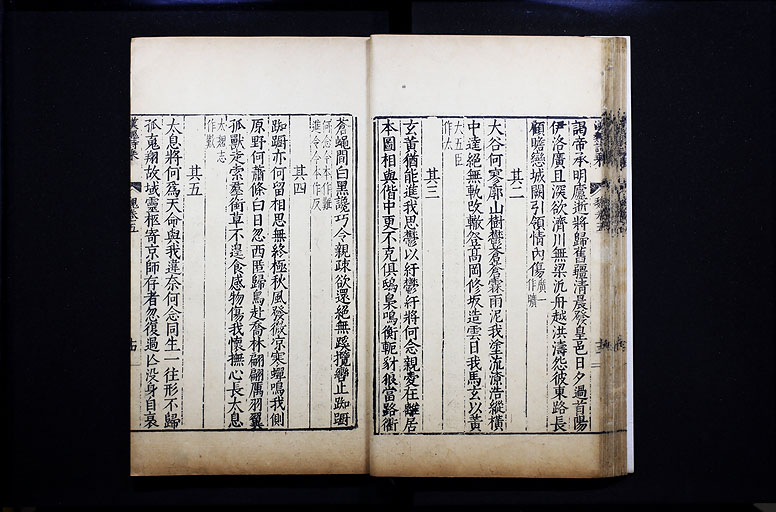 謁帝承明廬逝將歸舊疆清晨發皇邑日夕過首陽
伊洛廣且深欲濟川無梁汎舟越洪濤怨彼東路長
顧瞻戀城闕引領情內傷廣一作曠
其二
大谷何寥廓山樹鬱蒼蒼霖雨泥我塗流潦浩縱橫
中逵絕無軌改轍登高岡修坂造雲日我馬玄以黃
大五臣作太
其三
玄黃猶能進我思鬱以紆鬱紆將何念親愛在離居
本圖相與偕中更不克俱鴟梟鳴衡軛豺狼當路衢
蒼蠅間白黑讒巧令親疎欲還絕無蹊攬轡止踟躕
何念今本作難進令今本作反
其四
踟躕亦何留相思無終極秋風發微凉寒蟬鳴我側
原野何蕭條白日忽西匿歸鳥赴喬林翩翩厲羽翼
孤獸走索羣銜草不遑食感物傷我懷撫心長太息
太魏志作歎
其五
太息將何爲天命與我違奈何念同生一往形不歸
孤䰟翔故域靈柩寄京師存者忽復過亾没身自衰
魏卷五